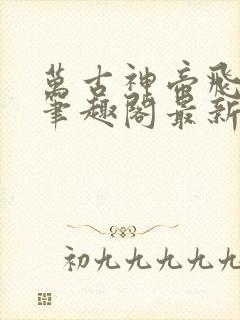 萬古神帝飛
筆趣閣最新
初九九九九九